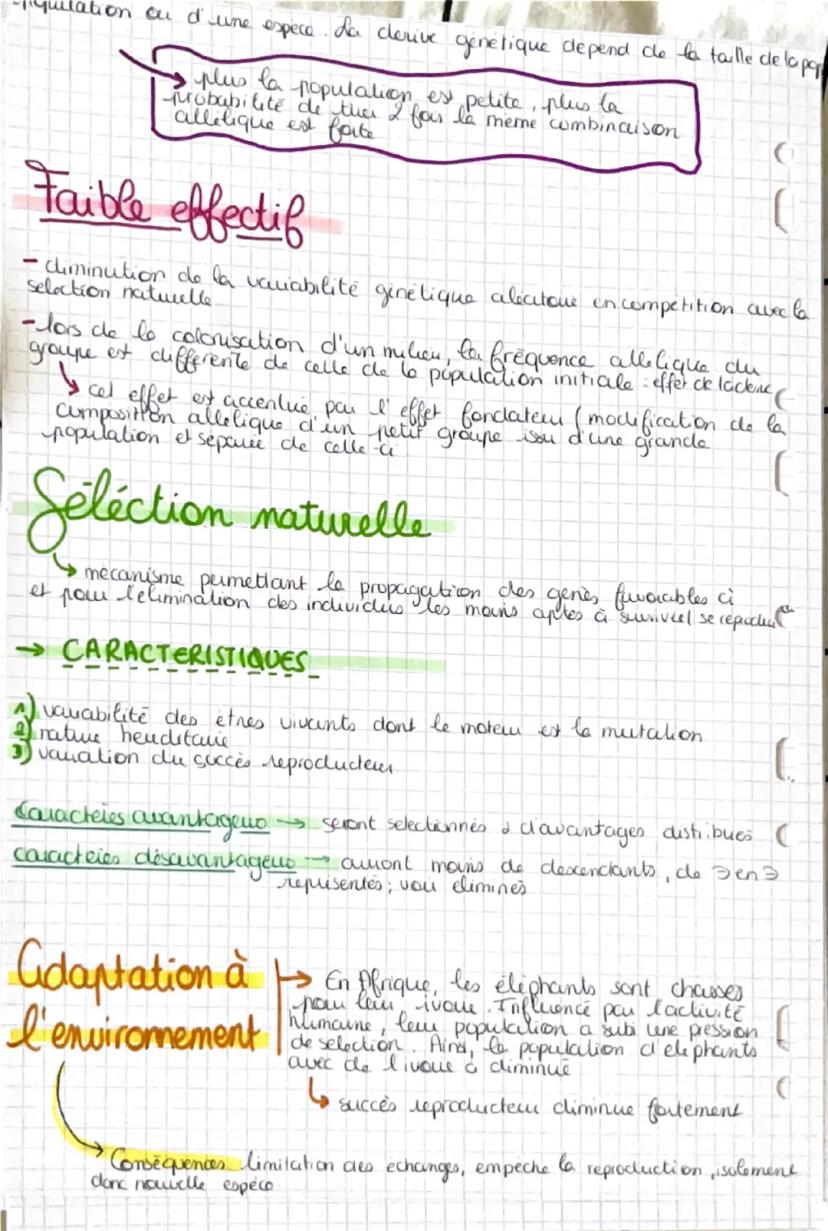 ou d'une espece. La derive génétique depend de la taille de la pop
→ plus la population est petite, plus la
probabilité de tirer 2 fois la même combinaison
allélique est forte
Faible effectif
- diminution de la variabilité génétique aleatoire en competition avec la
selection naturelle
- lors de la colonisation d'un milieu, la fréquence allelique du
groupe est differente de celle de la population initiale : effet de
↳ cet effet est accentué par l'effet fondateur (modification de la
composition allelique d'un petit groupe issu d'une grande
population et séparée de celle-ci
Séléction naturelle
↳ mecanisme permettant la propagation des genes favorables ci
et pour l'elimination des individus les moins aptes à se
→ CARACTERISTIQUES
1) variabilité des êtres vivants dont le moteur est la mutation
2) nature hereditaire
3) variation du succès reproducteur
Caractères avantageux → seront selectionnés d'avantages distribués
caractères désavantageux → auront moins de descendants, de ⊃ en ⊃
représentés; voir eliminés
Adaptation à
l'environnement
→ En Afrique, les éléphants sont chassés
pour leur ivoire. Influencé par l'activité
humaine, leur population a subi une pression
de selection. Ainsi, la population d'elephants
avec de l'ivoire a diminué
↳ succès reproducteur diminue fortement
Conséquences limitation des echanges, empeche la reproduction, isolement
donc nouvelle espèce